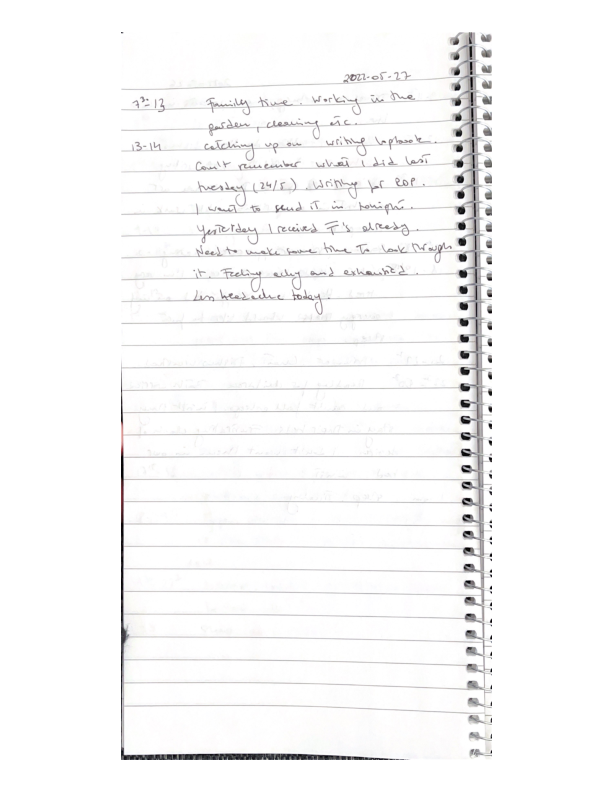 2022-05-27
7³⁰-13 Family time. Working in the
garden, cleaning etc.
13-14 catching up on writing logbook.
Can't remember what I did last
tuesday (24/5). Writing for ROP.
I want to send it in tonight.
Yesterday I received T's already.
Need to make some time to look through
it. Feeling achy and exhausted.
Less headache today.